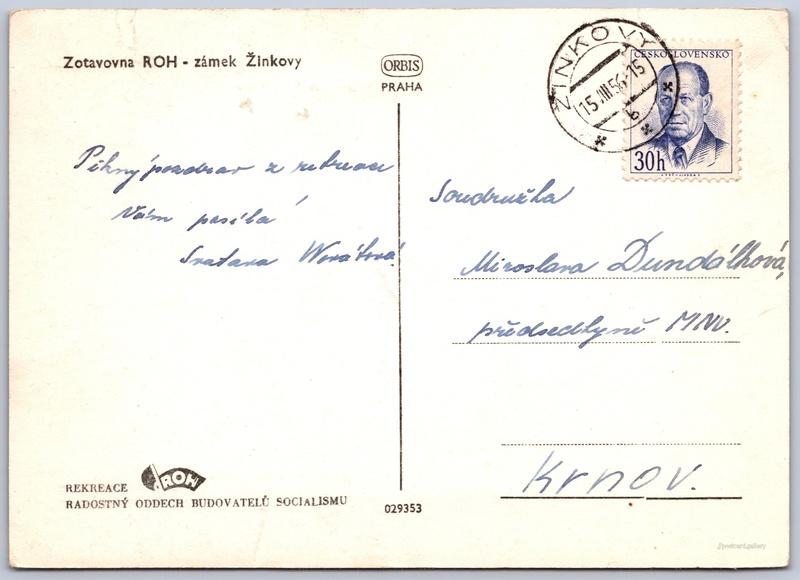 Zotavovna ROH - zámek Žinkovy
ORBIS
PRAHA
ŽINKOVY
15.III.56-15
b
ČESKOSLOVENSKO
30h
Pěkný pozdrav z rekreace
Vám posílá
Svatava
Soudružka
Miroslava Dundálková,
předsedkyně MNV.
Krnov.
REKREACE ROH
RADOSTNÝ ODDECH BUDOVATELŮ SOCIALISMU
029353